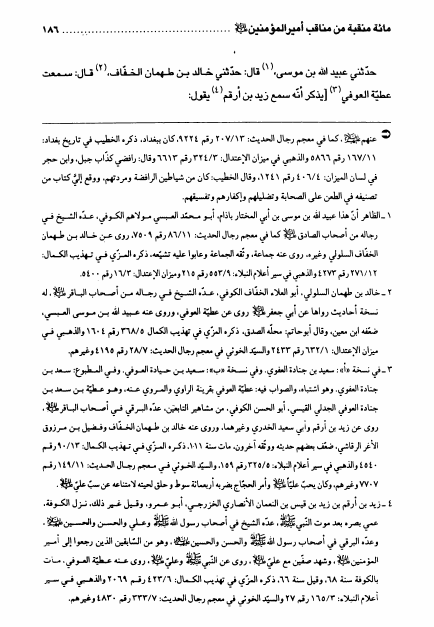 مائة منقبة من مناقب أمير المؤمنين ﷺ ................................................ ١٨٦
حدّثني عبيد الله بن موسى،(١) قال: حدّثني خالد بن طهمان الخفّاف،(٢) قال: سمعت
عطيّة العوفي(٣) [يذكر أنّه سمع زيد بن أرقم(٤) يقول:
عنهم ﷺ، كما في معجم رجال الحديث: ٢٠٧/١٣ رقم ٩٢٢٤، كان ببغداد، ذكره الخطيب في تاريخ بغداد:
١٦٧/١١ رقم ٥٨٦٦ والذهبي في ميزان الإعتدال: ٣٢٤/٣ رقم ٦٦١٣ وقال: رافضي كذّاب جبل، وابن حجر
في لسان الميزان: ٤٠٦/٤ رقم ١٢٤١، وقال الخطيب: كان من شياطين الرافضة ومردتهم، ووقع إليّ كتاب من
تصنيفه في الطعن على الصحابة وتضليلهم وإكفارهم وتفسيقهم.
١ ـ الظاهر أنّ هذا عبيد الله بن موسى بن أبي المختار باذام، أبو محمّد العبسي مولاهم الكوفي، عدّه الشيخ في
رجاله من أصحاب الصادق ﷺ كما في معجم رجال الحديث: ٨٦/١١ رقم ٧٥٠٩، روى عن خالد بن طهمان
الخفّاف السلولي وغيره، روى عنه جماعة، وثّقه الجماعة وعابوا عليه تشيّعه، ذكره المزّي في تهذيب الكمال:
٢٧١/١٢ رقم ٤٢٧٣ والذهبي في سير أعلام النبلاء: ٥٥٣/٩ رقم ٢١٥ وميزان الإعتدال: ١٦/٣ رقم ٥٤٠٠.
٢ ـ خالد بن طهمان السلولي، أبو العلاء الخفّاف الكوفي، عدّه الشيخ في رجاله من أصحاب الباقر ﷺ، له
نسخة أحاديث رواها عن أبي جعفر ﷺ روى عن عطيّة العوفي، وروى عنه عبيد الله بن موسى العبسي،
ضعّفه ابن معين، وقال أبوحاتم: محلّه الصدق، ذكره المزّي في تهذيب الكمال ٣٦٨/٥ رقم ١٦٠٤ والذهبي في
ميزان الإعتدال: ٦٣٢/١ رقم ٢٤٣٣ والسيّد الخوئي في معجم رجال الحديث: ٢٨/٧ رقم ٤١٩٥ وغيرهم.
٣ ـ في نسخة «أ»: سعيد بن جنادة العفوي. وفي نسخة «ب»: سعيد بن حيادة العوفي. وفي المطبوع: سعد بن
جنادة العفوي. وهو اشتباه، والصواب فيه: عطيّة العوفي بقرينة الراوي والمروي عنه، وهو عطيّة بن سعد بن
جنادة العوفي الجدلي القيسي، أبو الحسن الكوفي، من مشاهير التابعين، عدّه البرقي في أصحاب الباقر ﷺ،
روى عن زيد بن أرقم وأبي سعيد الخدري وغيرهما، وروى عنه خالد بن طهمان الخفّاف وفضيل بن مرزوق
الأغر الرقاشي، ضعّف بعضهم حديثه ووثّقه آخرون، مات سنة ١١١، ذكره المزّي في تهذيب الكمال: ٩٠/١٣ رقم
٤٥٤٠ والذهبي في سير أعلام النبلاء: ٣٢٥/٥ رقم ١٥٩، والسيّد الخوئي في معجم رجال الحديث: ١٤٩/١١ رقم
٧٧٠٧ وغيرهم، وكان يحبّ عليّاً ﷺ وأمر الحجّاج بضربه أربعمائة سوط و حلق لحيته لامتناعه عن سبّ عليّ ﷺ.
٤ ـ زيد بن أرقم بن زيد بن قيس بن النعمان الأنصاري الخزرجي، أبو عمرو، وقيل غير ذلك، نزل الكوفة،
عمي بصره بعد موت النبيّ ﷺ، عدّه الشيخ في أصحاب رسول الله ﷺ وعلي والحسن والحسين ﷺ،
وعدّه البرقي في أصحاب رسول الله ﷺ والحسن والحسين ﷺ، وهو من السابقين الذين رجعوا إلى أمير
المؤمنين ﷺ، وشهد صفّين مع عليّ ﷺ، روى عن النبي ﷺ وعليّ ﷺ، روى عنه عطيّة العوفي، مات
بالكوفة سنة ٦٨، وقيل سنة ٦٦، ذكره المزّي في تهذيب الكمال: ٤٢٣/٦ رقم ٢٠٦٩ والذهبي في سير
أعلام النبلاء: ١٦٥/٣ رقم ٢٧ والسيّد الخوئي في معجم رجال الحديث: ٣٣٣/٧ رقم ٤٨٣٠ وغيرهم.